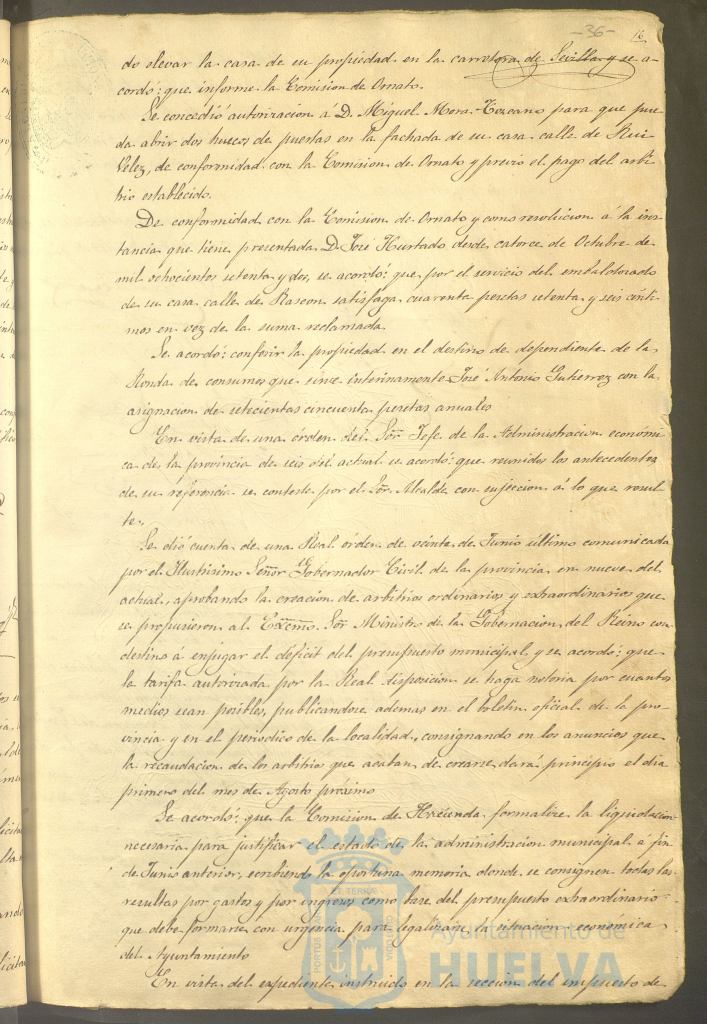 -36- 16
do elevar la casa de su propiedad en la carretera de Sevilla y se a-
cordó: que informe la Comision de Ornato.
Se concedió autorizacion á D. Miguel Mora-Toscano para que pue-
da abrir dos huecos de puertas en la fachada de su casa calle de Rui
Velez, de conformidad con la Comision de Ornato y previo el pago del arbi-
trio establecido.
De conformidad con la Comision de Ornato y como resolucion á la ins-
tancia que tiene presentada D. José Hurtado desde catorce de Octubre de
mil ochocientos setenta y dos, se acordó: que por el servicio del embaldosado
de su casa calle de Rascon satisfaga cuarenta pesetas setenta y seis cénti-
mos en vez de la suma reclamada.
Se acordó: conferir la propiedad en el destino de dependiente de la
Ronda de consumos que sirve interinamente José Antonio Gutierrez con la
asignacion de setecientas cincuenta pesetas anuales
En vista de una órden del Sor. Jefe de la Administracion económi-
ca de la provincia de seis del actual se acordó: que reunidos los antecedentes
de su referencia se conteste por el Sor. Alcalde con sujecion á lo que resul-
te.
Se dió cuenta de una Real órden de veinte de Junio último comunicada
por el Ilustrisimo Señor Gobernador Civil de la provincia en nueve del
actual, aprobando la creacion de arbitrios ordinarios y extraordinarios que
se propusieron al Excmo. Sor. Ministro de la Gobernacion del Reino con
destino á enjugar el déficit del presupuesto municipal y se acordó: que
la tarifa autorizada por la Real disposicion se haga notoria por cuantos
medios sean posibles, publicandose ademas en el boletin oficial de la pro-
vincia y en el periodico de la localidad, consignando en los anuncios que
la recaudacion de los arbitrios que acaban de crearse dará principio el dia
primero del mes de Agosto próximo
Se acordó: que la Comision de Hacienda formalize la liquidacion
necesaria para justificar el estado de la administracion municipal á fin
de Junio anterior, escribiendo la oportuna memoria donde se consignen todas las
resultas por gastos y por ingresos como base del presupuesto extraordinario
que debe formarse con urgencia para legalizar la situacion económica
del Ayuntamiento
En vista del expediente instruido en la seccion del impuesto de
Ayuntamiento de
HUELVA